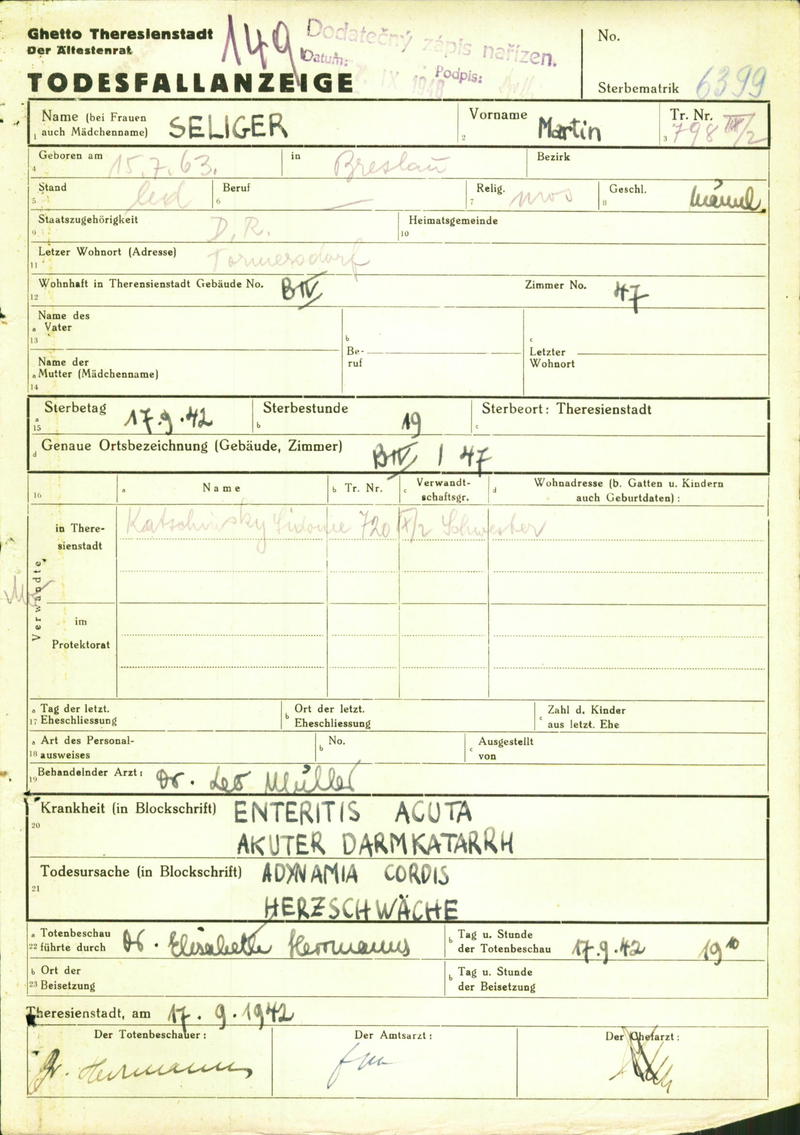 Ghetto Theresienstadt
Der Ältestenrat
149
Dodatečný zápis nařízen.
Datum: IX 1948 Podpis:
No.
TODESFALLANZEIGE
Sterbematrik 6399
1 Name (bei Frauen auch Mädchenname) SELIGER
2 Vorname Martin
3 Tr. Nr. 798 IX/2
4 Geboren am 15.7.63. in Breslau Bezirk
5 Stand led 6 Beruf — 7 Relig. mos 8 Geschl. männl.
9 Staatszugehörigkeit D.R. 10 Heimatsgemeinde
11 Letzer Wohnort (Adresse) Tormersdorf
12 Wohnhaft in Therensienstadt Gebäude No. BIV Zimmer No. 47
13 a Name des Vater
b Beruf
c Letzter Wohnort
14 a Name der Mutter (Mädchenname)
15 a Sterbetag 17.9.42 b Sterbestunde 19 c Sterbeort: Theresienstadt
d Genaue Ortsbezeichnung (Gebäude, Zimmer) BIV / 47
16 a Name b Tr. Nr. c Verwandtschaftsgr. d Wohnadresse (b. Gatten u. Kindern auch Geburtdaten) :
Verwandte
in Theresienstadt Katschinsky Sidonie 720 IX/2 Schwester
im Protektorat
17 a Tag der letzt. Eheschliessung b Ort der letzt. Eheschliessung c Zahl d. Kinder aus letzt. Ehe
18 a Art des Personalausweises b No. c Ausgestellt von
19 Behandelnder Arzt: Dr. Leo Müller
20 Krankheit (in Blockschrift) ENTERITIS ACUTA
AKUTER DARMKATARRH
21 Todesursache (in Blockschrift) ADYNAMIA CORDIS
HERZSCHWÄCHE
22 a Totenbeschau führte durch Dr. Elisabeth Herrmanns b Tag u. Stunde der Totenbeschau 17.9.42 19 10
23 b Ort der Beisetzung b Tag u. Stunde der Beisetzung
Theresienstadt, am 17.9.1942
Der Totenbeschauer: Der Amtsarzt: Der Chefarzt:
Dr. Herrmanns